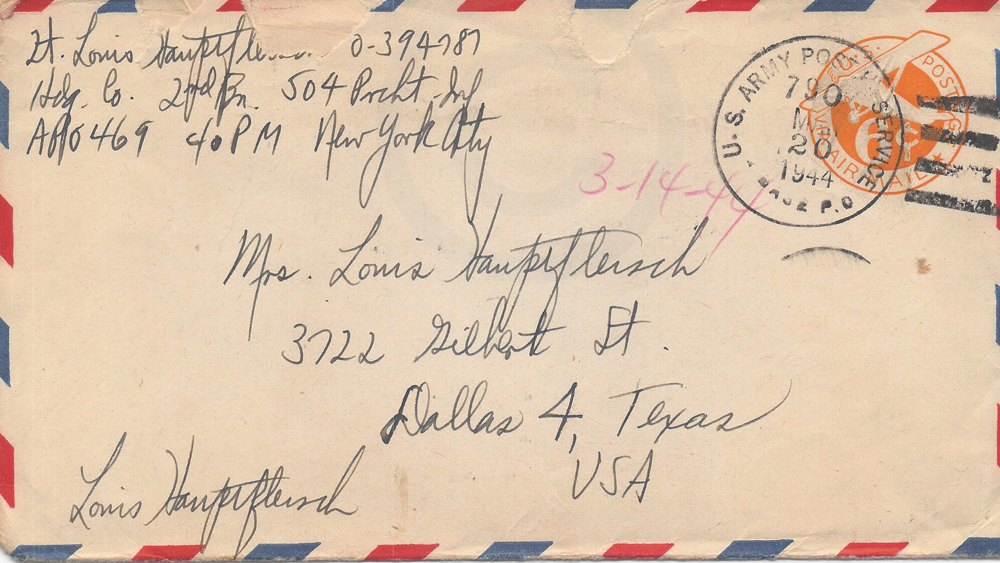 Lt. Louis O-394787
Hdq. Co. 2nd Bn. 504 Prcht. Inf
APO 469 % PM New York City
U. S. ARMY POSTAL SERVICE
790
20
1944
BASE P.O
POSTAGE
VIA AIR MAIL
6¢
3-14-44
Mrs. Louis Hauptfleisch
3722 Gilbert St.
Dallas 4, Texas
USA
Louis Hauptfleisch